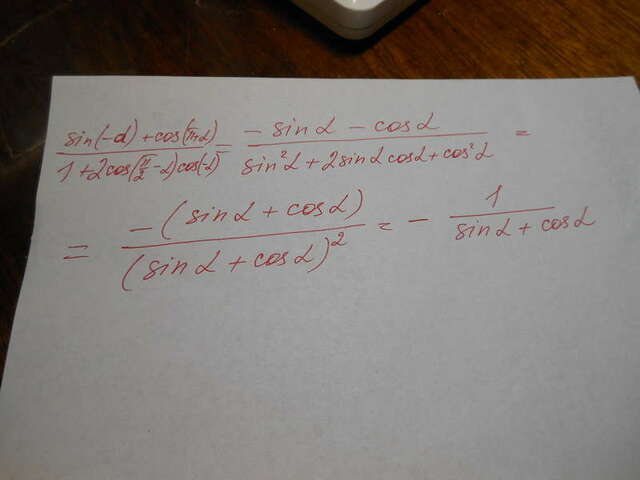 (sin(-α)+cos(π+α))/(1+2cos(π/2-α)cos(-α)) = (-sinα-cosα)/(sin²α+2sinαcosα+cos²α) =
= (-(sinα+cosα))/((sinα+cosα)²) = - 1/(sinα+cosα)